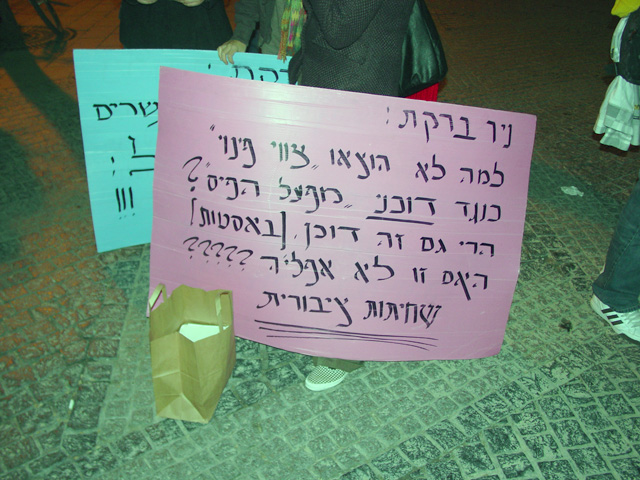 ניר ברקת:
למה לא הוצאו "צווי פינוי"
כנגד דוכני "מפעל הפיס"??
הרי גם זה דוכן [באסטות]
האם זו לא אפליה ?????
שחיתות ציבורית